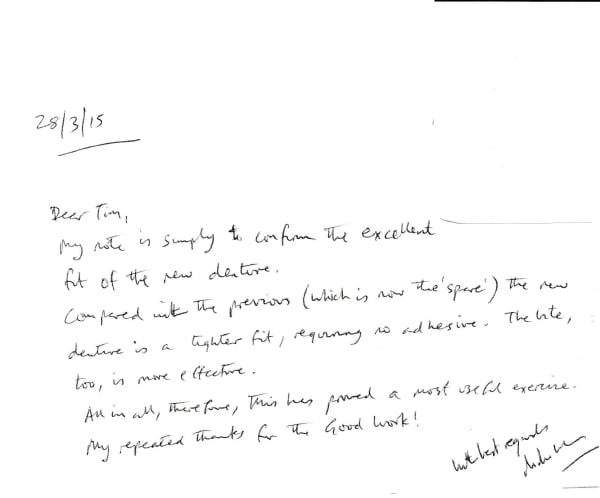 28/3/15
Dear Tim,
My note is simply to confirm the excellent
fit of the new denture.
Compared with the previous (which is now the 'spare') the new
denture is a tighter fit, requiring no adhesive. The bite,
too, is more effective.
All in all, therefore, this has proved a most useful exercise.
My repeated thanks for the Good Work!
with best regards